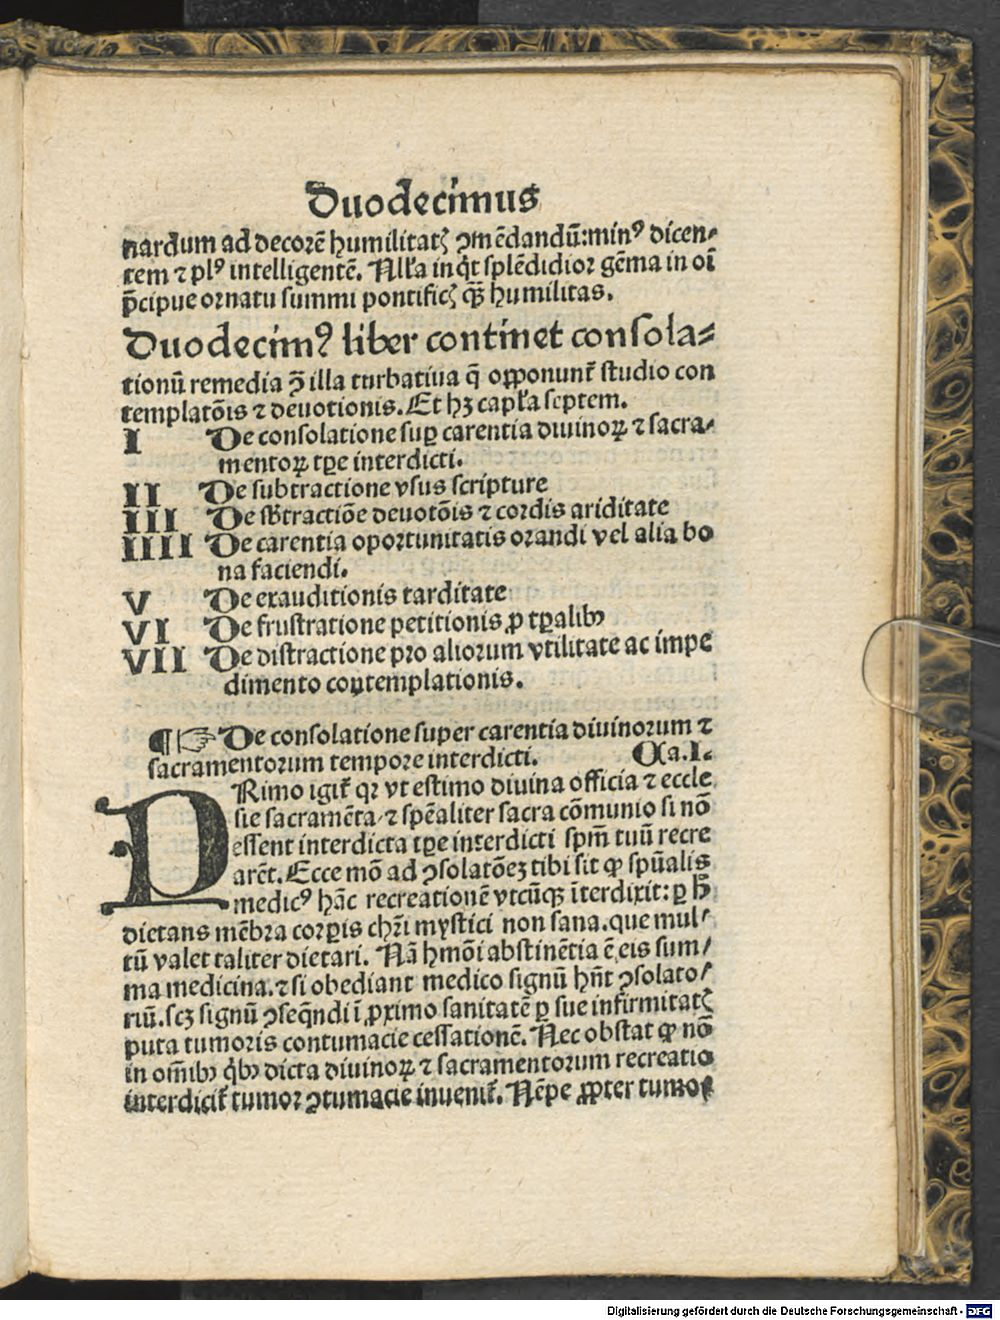 Duodecimus
nardum ad decorē humilitatꝭ ꝯmēdandū:minꝰ dicen-
tem ⁊ plꝰ intelligentē. Nlľa inqͥt splēdidior gēma in oī
p̄cipue ornatu summi pontificꝭ qꝫ̄ humilitas.
Duodecimꝰ liber continet consola-
tionū remedia ꝯ̄ illa turbatiua q̄ opponunt᷑ studio con
templatōis ⁊ deuotionis. Et hꝫ capľa septem.
I De consolatione suꝑ carentia diuinoꝝ ⁊ sacra-
mentoꝝ tꝑe interdicti.
II De subtractione vsus scripture
III De sb̄tractiōe deuotōis ⁊ cordis ariditate
IIII De carentia oportunitatis orandi vel alia bo
na faciendi.
V De exauditionis tarditate
VI De frustratione petitionis ꝓ tꝑalibꝰ
VII De distractione pro aliorum vtilitate ac impe
dimento contemplationis.
¶ ☞ De consolatione super carentia diuinorum ⁊
sacramentorum tempore interdicti. Ca.I.
PRimo igit᷑ qꝛ vt estimo diuina officia ⁊ eccle
sie sacramēta ⁊ spēaliter sacra cōmunio si nō
essent interdicta tꝑe interdicti spm̄ tuū recre
arēt. Ecce mō ad ꝯsolatōeꝫ tibi sit ꝙ spūalis
medicꝰ hāc recreationē vtcūqꝫ īterdixit: ꝑ h̄
dietans mēbra corꝑis chr̄i mystici non sana. que mul-
tū valet taliter dietari. Nā hmōi abstinētia ē eis sum-
ma medicina. ⁊ si obediant medico signū hn̄t ꝯsolato-
riū. scꝫ signū ꝯseq̄ndi ī ꝓximo sanitatē ꝑ sue infirmitatꝭ
puta tumoris contumacie cessationē. Nec obstat ꝙ nō
in om̄ibꝰ qͥbꝰ dicta diuinoꝝ ⁊ sacramentorum recreatio
interdicit᷑ tumor ꝯtumacie inuenit᷑. Nēpe ꝓpter tumor
Digitalisierung gefördert durch die Deutsche Forschungsgemeinschaft - DFG